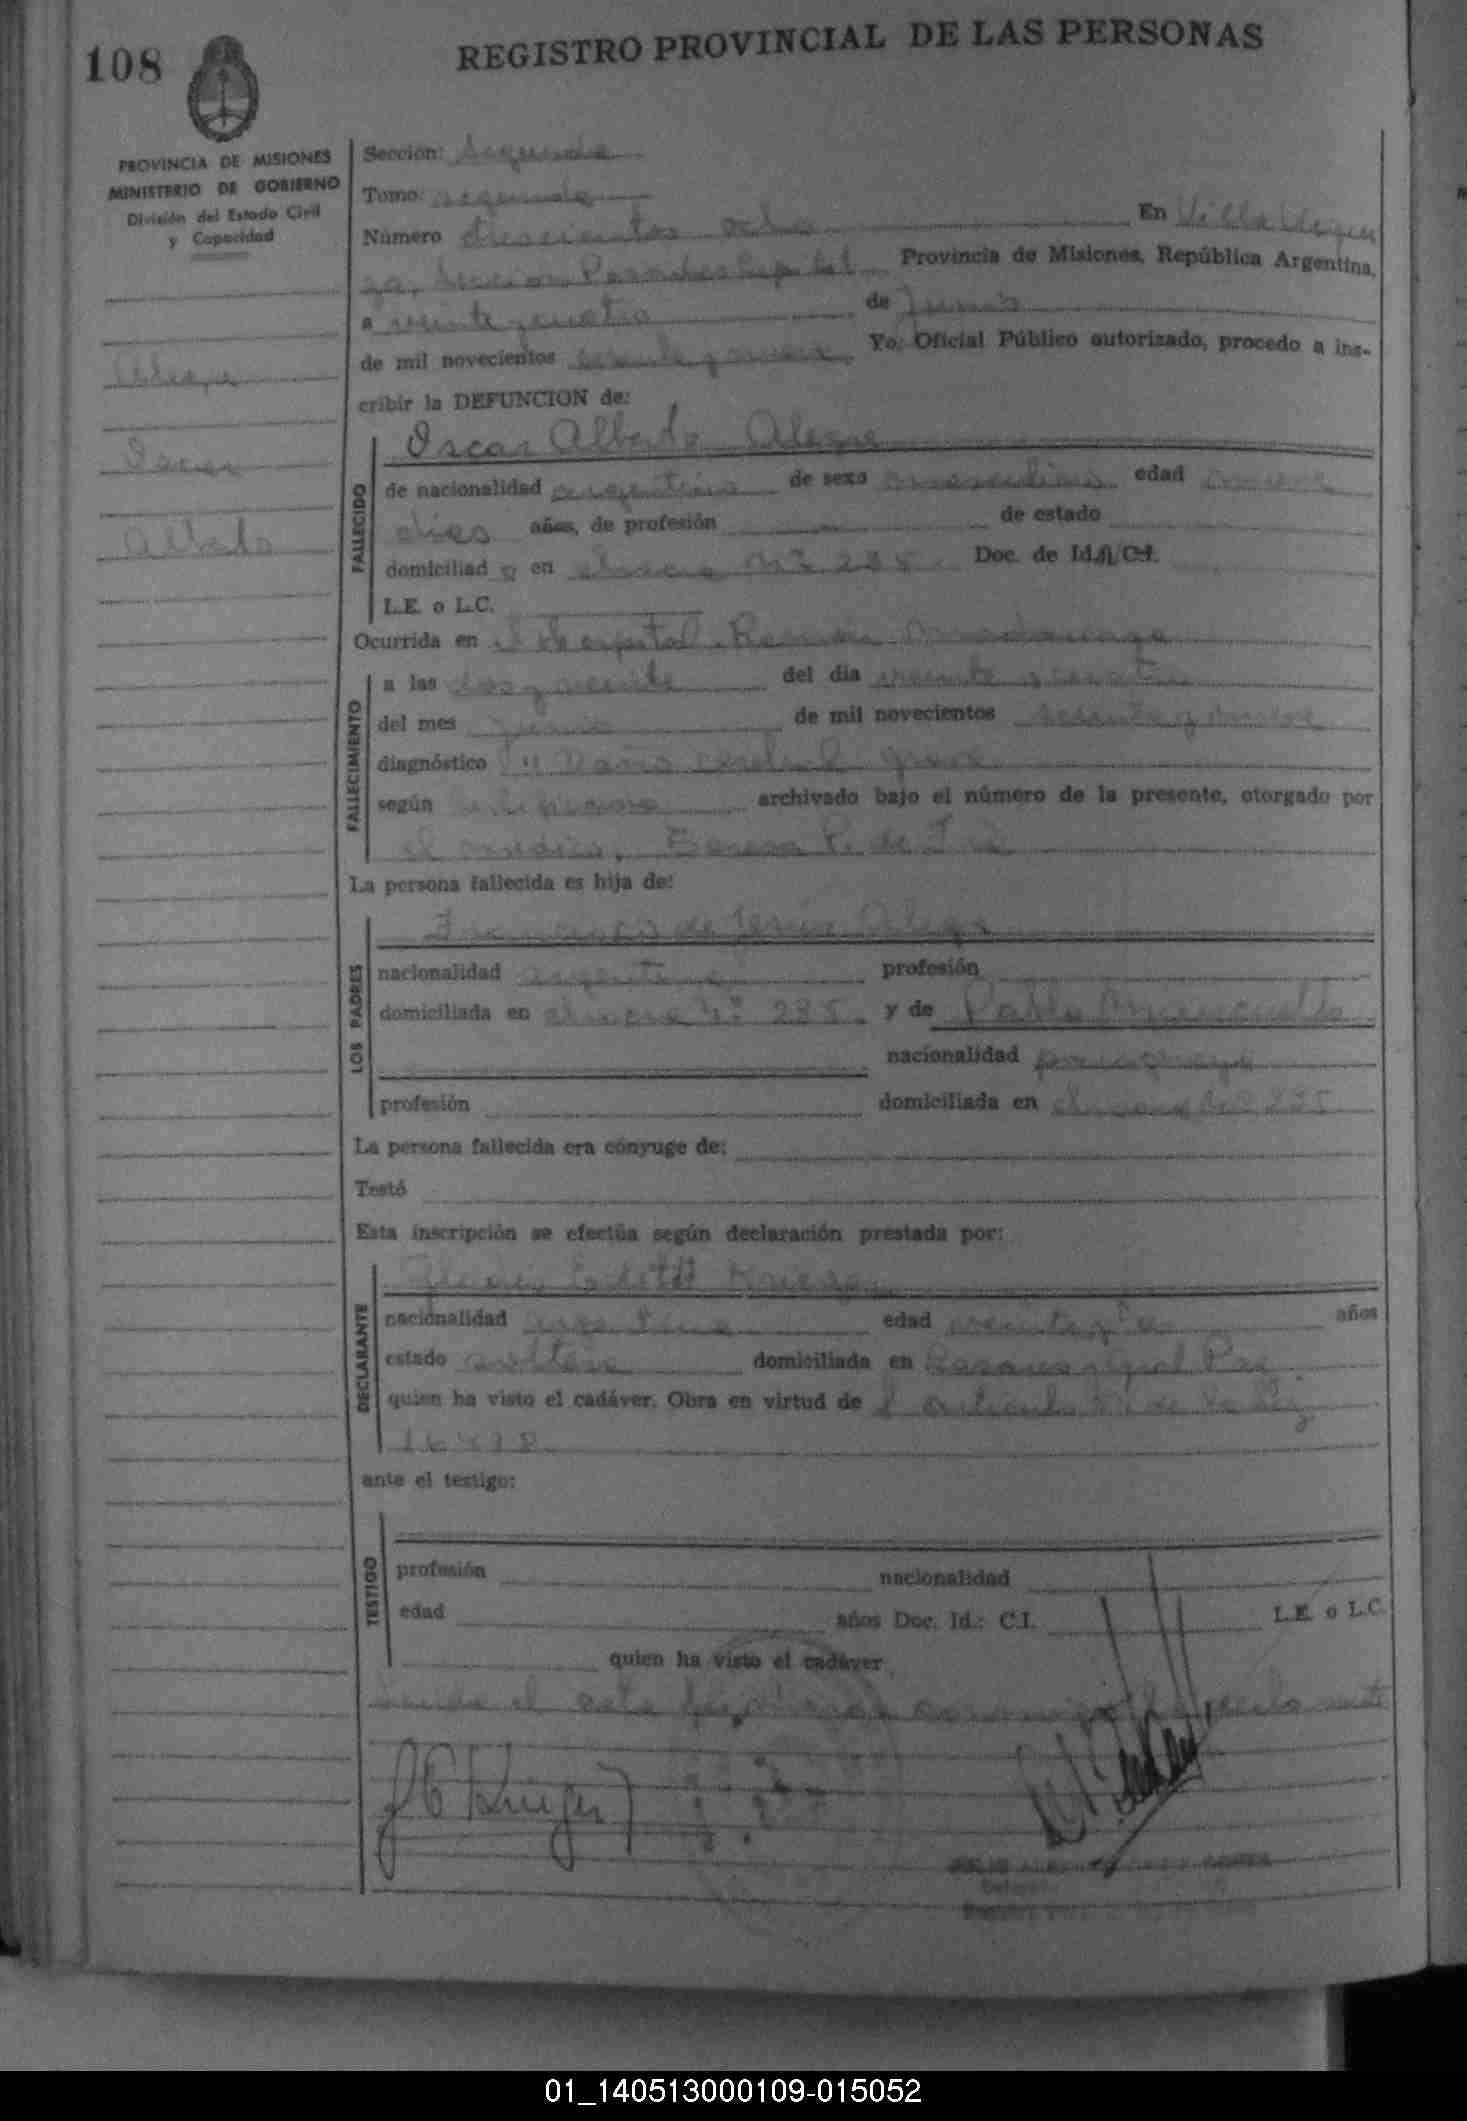 108
REGISTRO PROVINCIAL DE LAS PERSONAS
PROVINCIA DE MISIONES
MINISTERIO DE GOBIERNO
División del Estado Civil
y Capacidad
Alegre
Oscar
Alberto
Sección: Segunda
Tomo: segundo
Número doscientos ocho En Villa
Sección Posadas Capital Provincia de Misiones, República Argentina,
a veinte y cuatro de Junio
de mil novecientos sesenta y nueve. Yo, Oficial Público autorizado, procedo a ins-
cribir la DEFUNCION de:
Oscar Alberto Alegre
FALLECIDO
de nacionalidad argentino de sexo masculino edad nueve
días años, de profesión de estado
domiciliad o en chacra Nº 235. Doc. de Id. C.I.
L.E. o L.C.
Ocurrida en el Hospital Ramón Madariaga
FALLECIMIENTO
a las dos y veinte del día veinte y cuatro
del mes Junio de mil novecientos sesenta y nueve
diagnóstico Daño cerebral grave
según certificado archivado bajo el número de la presente, otorgado por
el médico, Teresa P. de
La persona fallecida es hija de:
LOS PADRES
Francisca de Jesús Alegre
nacionalidad argentina profesión
domiciliada en chacra Nº 235. y de Pablo
nacionalidad paraguayo
profesión domiciliada en chacra Nº 235
La persona fallecida era cónyuge de:
Testó
Esta inscripción se efectúa según declaración prestada por:
DECLARANTE
Krieger
nacionalidad argentina edad veinte y años
estado soltera domiciliada en y Gral Paz
quien ha visto el cadáver. Obra en virtud de l artículo de la Ley
ante el testigo:
TESTIGO
profesión nacionalidad
edad años Doc. Id.: C.I. L.E. o L.C.
quien ha visto el cadáver
el acta conmigo
Krieger
01_140513000109-015052